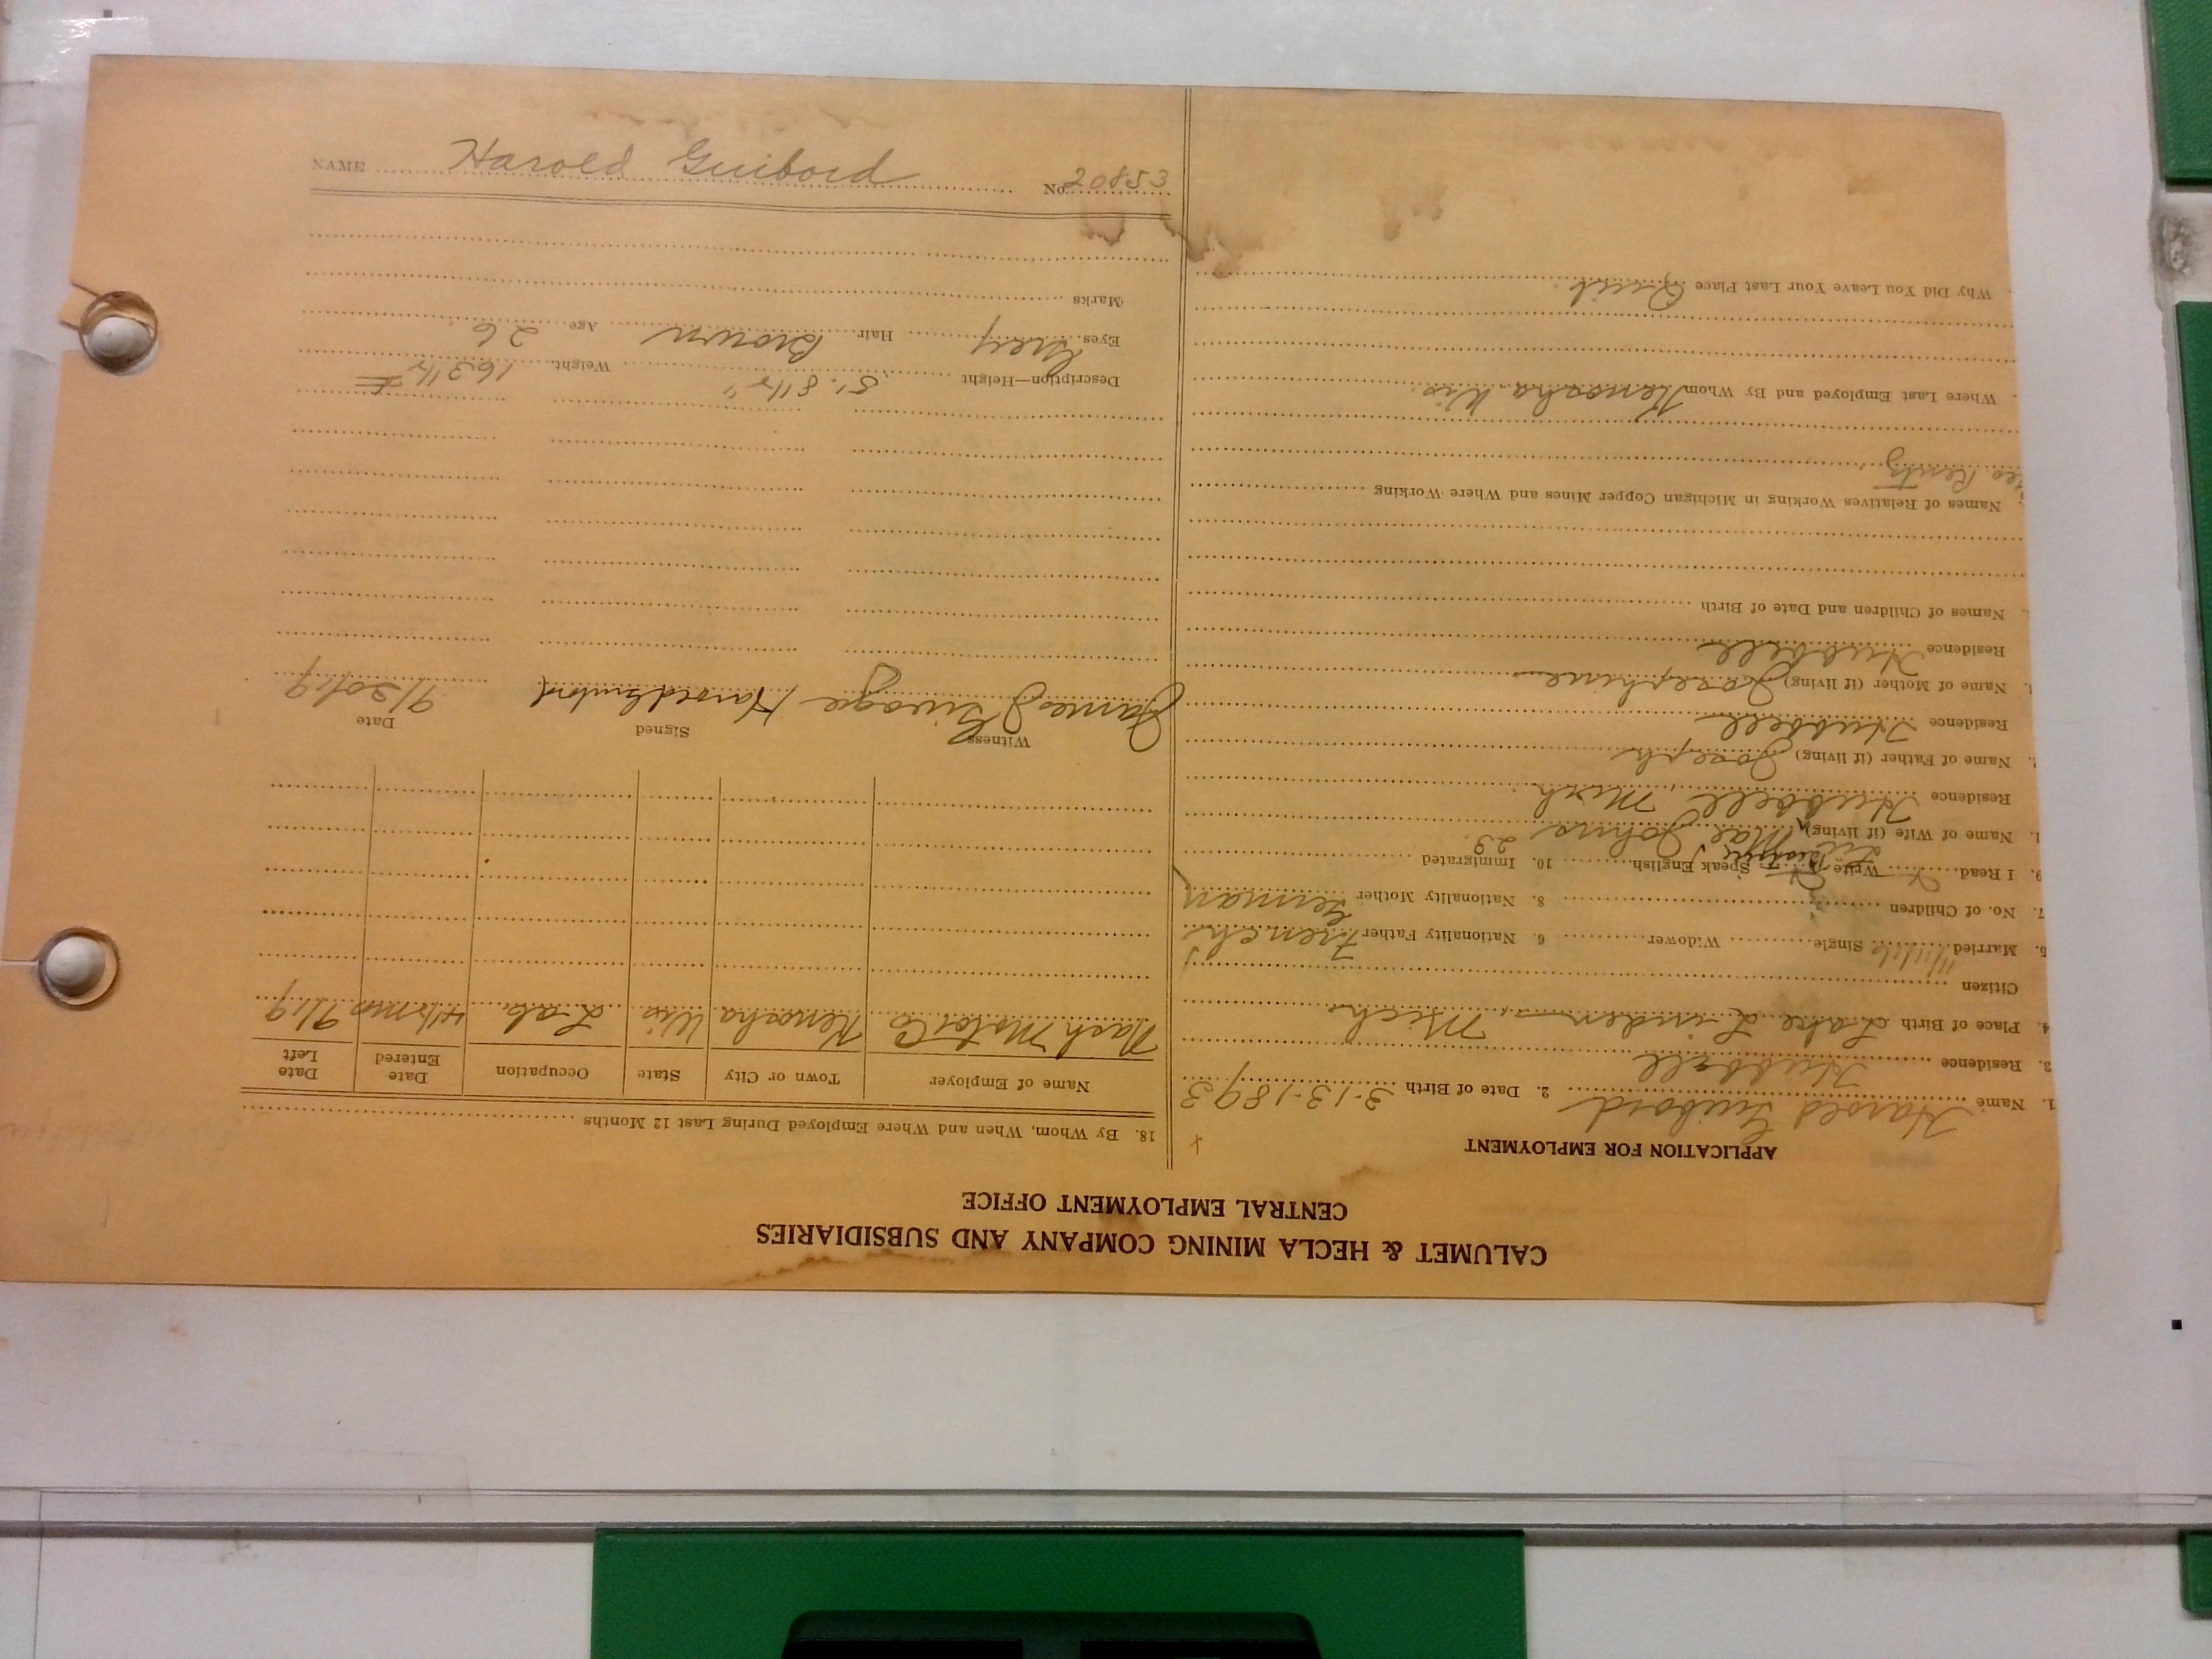 NAME Harold Guibord No. 20853
CALUMET & HECLA MINING COMPANY AND SUBSIDIARIES
CENTRAL EMPLOYMENT OFFICE
APPLICATION FOR EMPLOYMENT
1. Name Harold Guibord 2. Date of Birth 3-13-1893
3. Residence Hubbell
4. Place of Birth Lake Linden, Mich.
Citizen
5. Married Single Widower 6. Nationality Father French
7. No. of Children 8. Nationality Mother German
9. I Read Write Speak English 10. Immigrated
1. Name of Wife (if living) Mae Johns 23
Residence Hubbell Mich.
2. Name of Father (if living) Joseph
Residence Hubbell
Name of Mother (if living) Josephine
Residence Hubbell
Names of Children and Date of Birth
Names of Relatives Working in Michigan Copper Mines and Where Working
Where Last Employed and By Whom Kenosha Wis.
Why Did You Leave Your Last Place Quit.
18. By Whom, When and Where Employed During Last 12 Months
Name of Employer Town or City State Occupation Date Entered Date Left
Nash Motor Co Kenosha Wis. Lab. 9/19
Witness Signed Date
James J Harold Guibord 9/30/19
Description—Height 5'. 8 1/2" Weight 163 1/2 #
Eyes Grey Hair Brown Age 26.
Marks